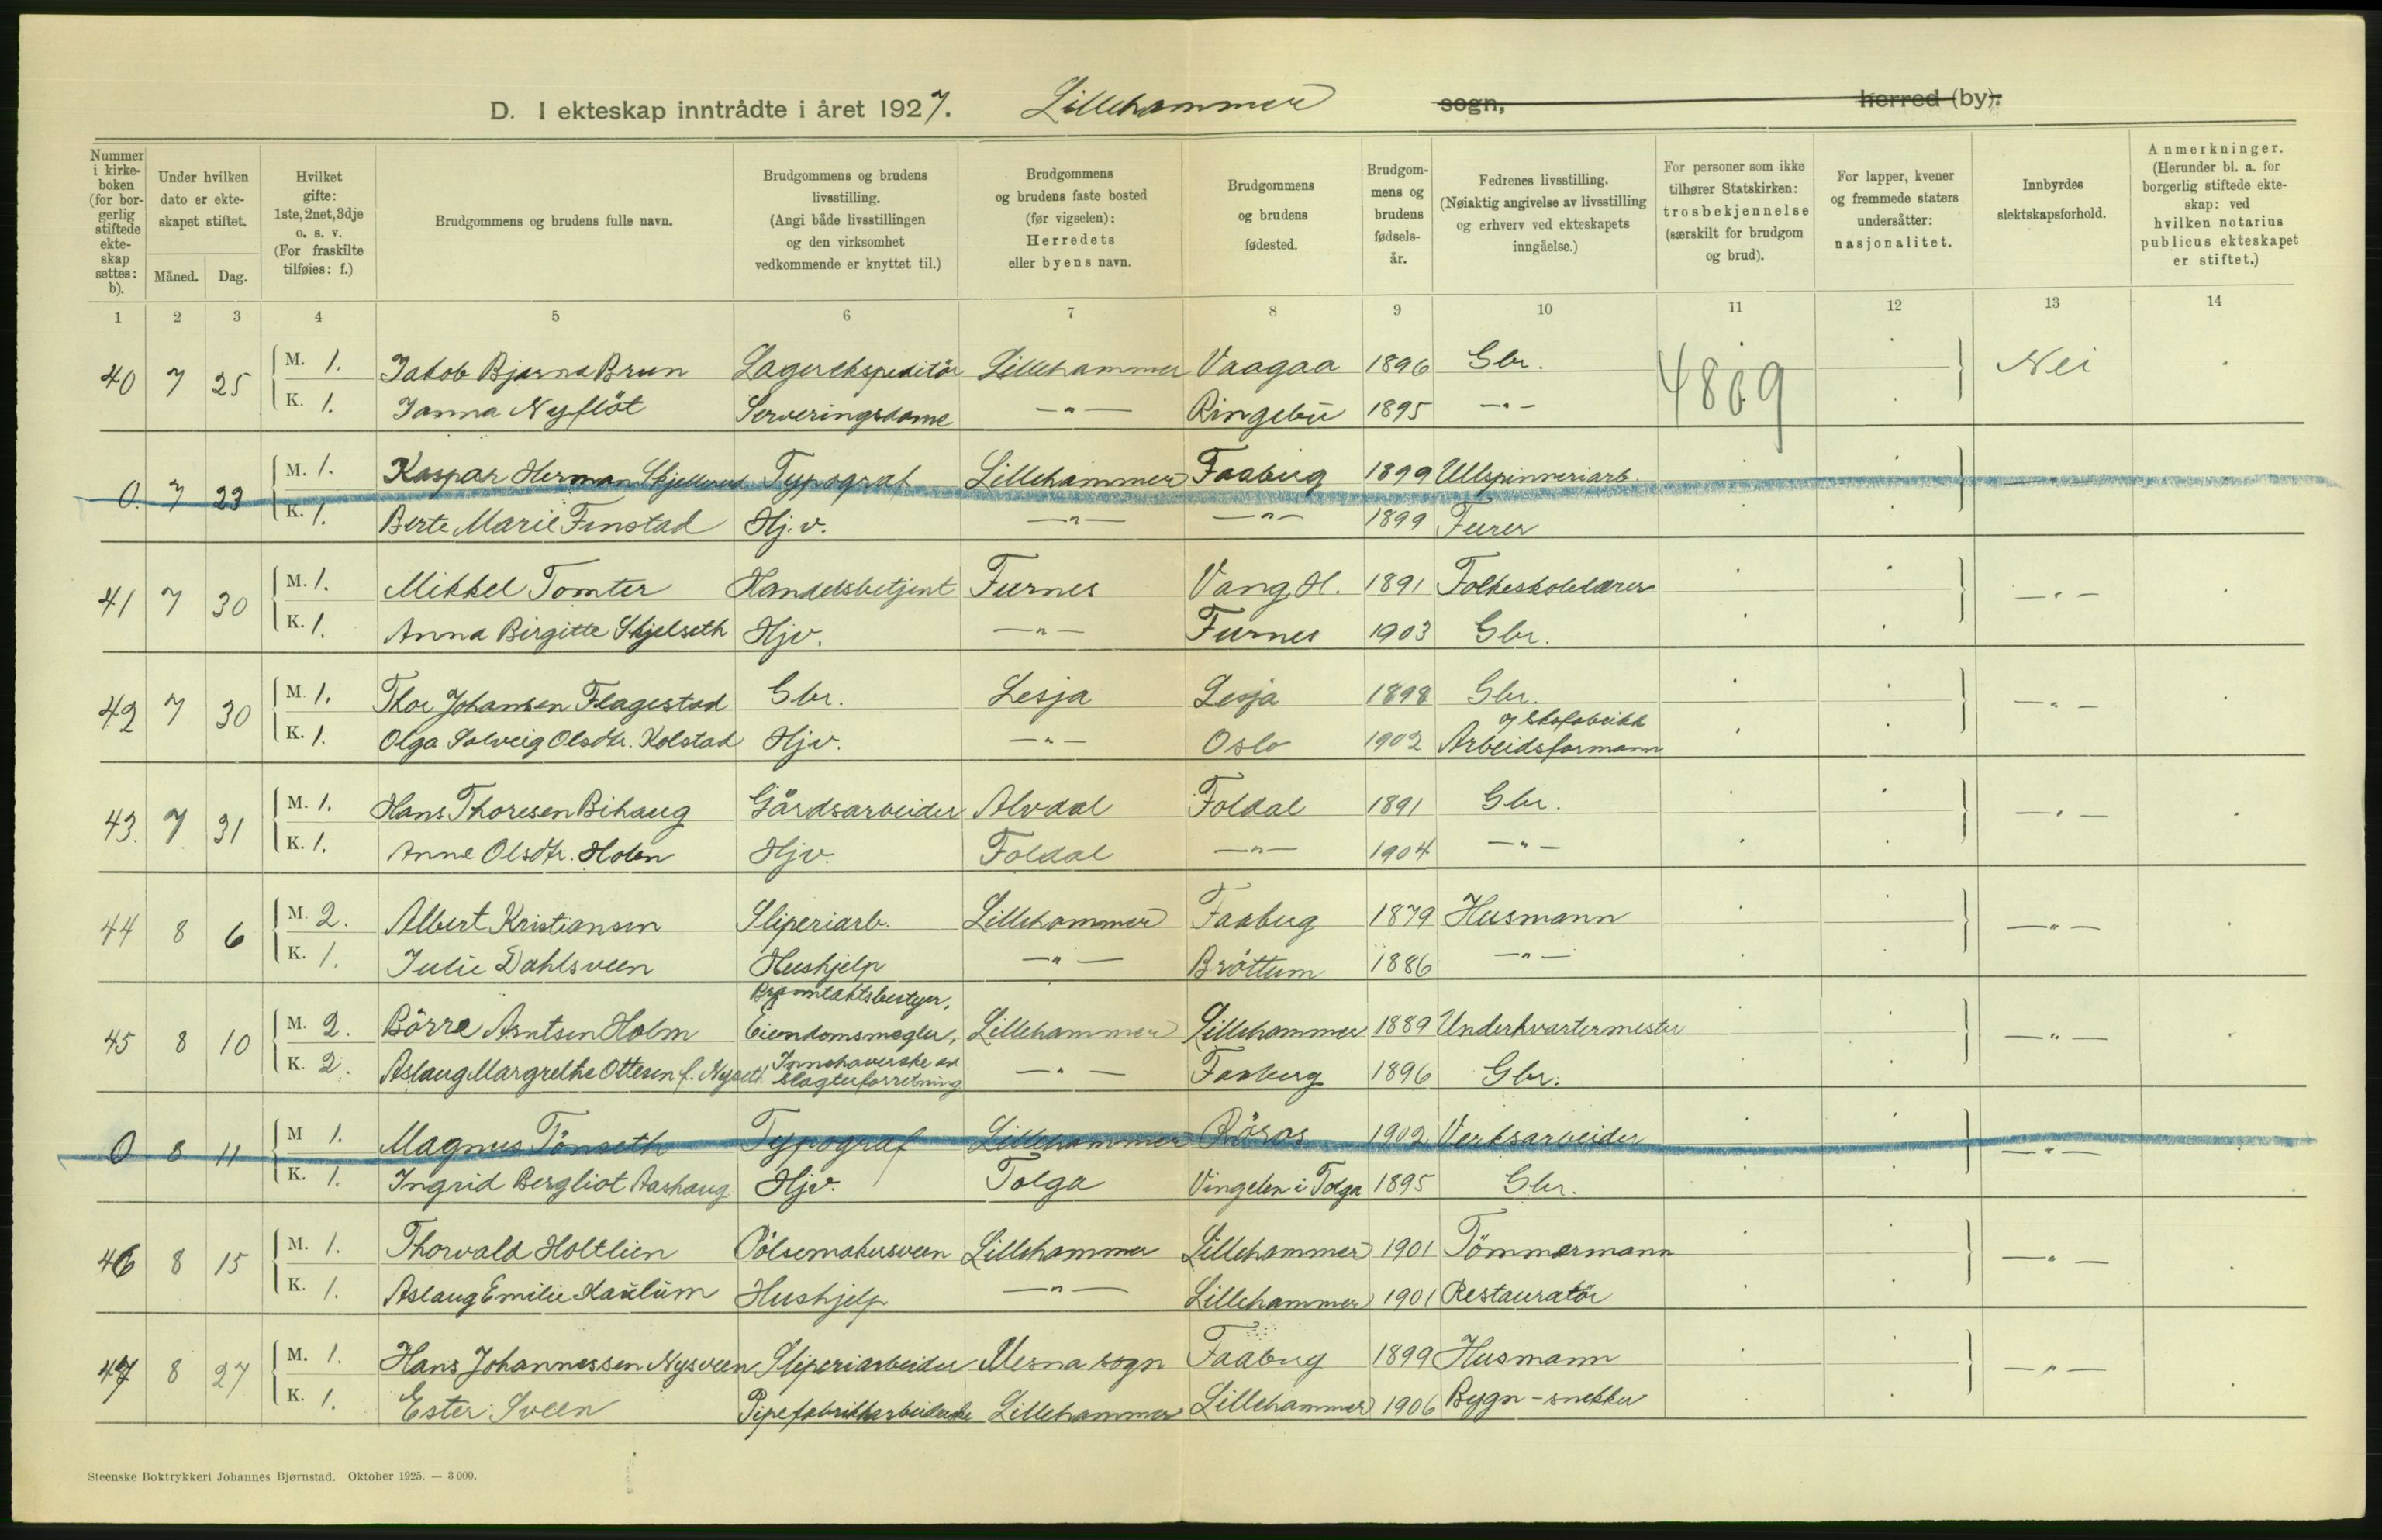 D. I ekteskap inntrådte i året 1927. Lillehammer sogn, herred (by).
Nummer i kirkeboken (for borgerlig stiftede ekteskap settes: b).
Under hvilken dato er ekteskapet stiftet.
Måned. Dag.
Hvilket gifte: 1ste, 2net, 3dje o. s. v. (For fraskilte tilføies: f.)
Brudgommens og brudens fulle navn.
Brudgommens og brudens livsstilling. (Angi både livsstillingen og den virksomhet vedkommende er knyttet til.)
Brudgommens og brudens faste bosted (før vigselen): Herredets eller byens navn.
Brudgommens og brudens fødested.
Brudgommens og brudens fødselsår.
Fedrenes livsstilling. (Nøiaktig angivelse av livsstilling og erhverv ved ekteskapets inngåelse.)
For personer som ikke tilhører Statskirken: trosbekjennelse (særskilt for brudgom og brud).
For lapper, kvener og fremmede staters undersåtter: nasjonalitet.
Innbyrdes slektskapsforhold.
Anmerkninger. (Herunder bl. a. for borgerlig stiftede ekteskap: ved hvilken notarius publicus ekteskapet er stiftet.)
1 2 3 4 5 6 7 8 9 10 11 12 13 14
40 7 25 M. 1. Jakob Bjarne Brun Lagerekspeditör Lillehammer Vaagaa 1896 Gbr. 4809 Nei
K. 1. Janna Nyflöt Serveringsdame —"— Ringebu 1895 —"—
0. 7 23 M. 1. Kaspar Herman Skjellerud Typograf Lillehammer Faaberg 1899 Ullspinneriarb. —"—
K. 1. Berte Marie Finstad Hj.v. —"— —"— 1899 Furer
41 7 30 M. 1. Mikkel Tomter Handelsbetjent Furnes Vang H. 1891 Folkeskolelærer —"—
K. 1. Anna Birgitte Skjelseth Hjv. —"— Furnes 1903 Gbr.
42 7 30 M. 1. Thor Johansen Flagestad Gbr. Lesja Lesja 1898 Gbr. —"—
K. 1. Olga Solveig Olsdtr. Kolstad Hjv. —"— Oslo 1902 Arbeidsformann v/ Skofabrikk
43. 7 31 M. 1. Hans Thoresen Bihaug Gårdsarbeider Alvdal Foldal 1891 Gbr. —"—
K. 1. Anne Olsdtr. Holen Hjv. Foldal —"— 1904 —"—
44 8 6 M. 2. Albert Kristiansen Sliperiarb. Lillehammer Faaberg 1879 Husmann —"—
K. 1. Julie Dahlsveen Hushjelp —"— Bröttum 1886 —"—
45 8 10 M. 2. Börre Arntsen Holm Eiendomsmegler, Lillehammer Lillehammer 1889 Underkvartermester —"—
K. 2. Aslaug Margrethe Ottesen f. Nyseth Innehaverske av slagterforretning —"— Faaberg 1896 Gbr.
0 8 11 M 1. Magnus Tönseth Typograf Lillehammer Röros 1902 Verksarbeider —"—
K. 1. Ingrid Bergliot Aashaug Hjv. Tolga Vingelen i Tolga 1895 Gbr.
46 8 15 M. 1. Thorvald Holtlien Pölsemakersveen Lillehammer Lillehammer 1901 Tömmermann —"—
K. 1. Aslaug Emilie Kaulum Hushjelp —"— Lillehammer 1901 Restauratör
47 8 27 M. 1. Hans Johannessen Nysveen Sliperiarbeider Mesna sogn Faaberg 1899 Husmann —"—
K. 1. Ester Sveen Pipefabrikkarbeiderske Lillehammer Lillehammer 1906 Bygn-snekker
Steenske Boktrykkeri Johannes Bjørnstad. Oktober 1925. — 3 000.